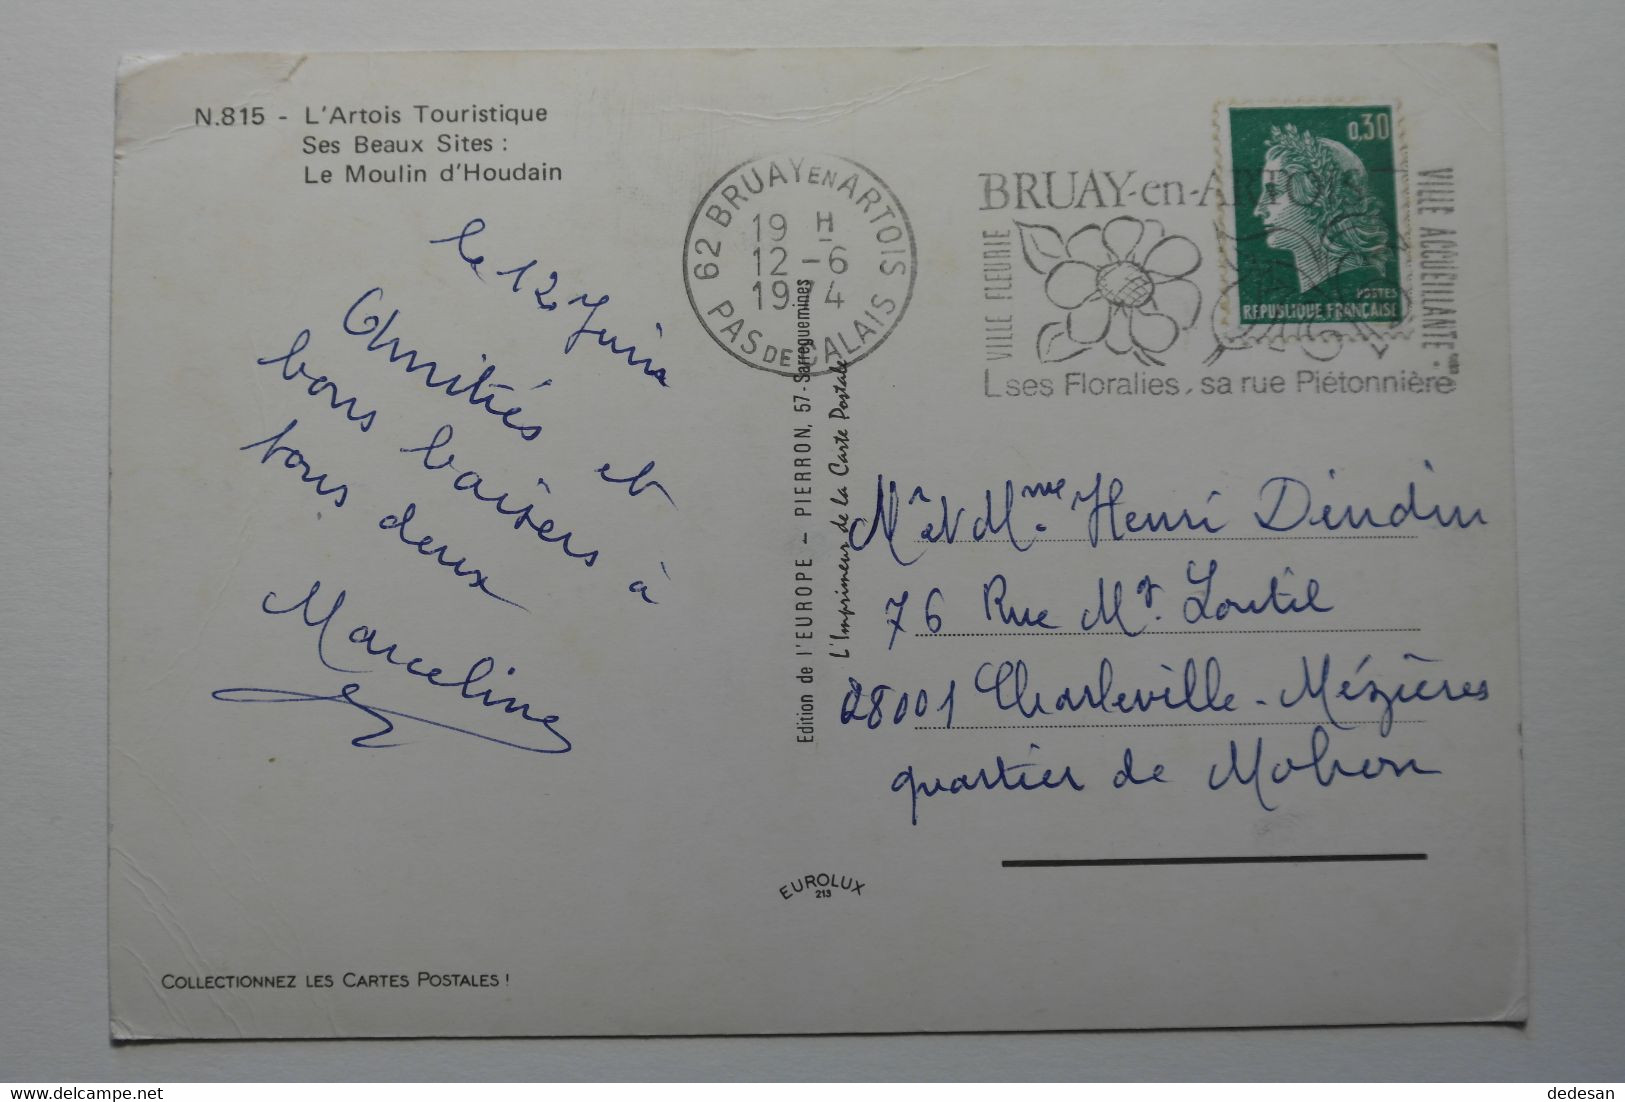 N.815 - L'Artois Touristique
Ses Beaux Sites :
Le Moulin d'Houdain
le 12 Juin
Amitiés et
bons baisers à
tous deux
Marceline
62 BRUAY EN ARTOIS
19 H
12 - 6
1974
PAS DE CALAIS
BRUAY-en-ARTOIS
VILLE FLEURIE
VILLE ACCUEILLANTE
ses Floralies, sa rue Piétonnière
0,30
POSTES
REPUBLIQUE FRANÇAISE
Edition de l'EUROPE – PIERRON, 57 - Sarreguemines
L'Imprimeur de la Carte Postale
Mr et Mme Henri Dindin
76 Rue Mr. Loutil
28001 Charleville-Mézières
quartier de Mohon
EUROLUX
213
COLLECTIONNEZ LES CARTES POSTALES !
delcampe.net
dedesan